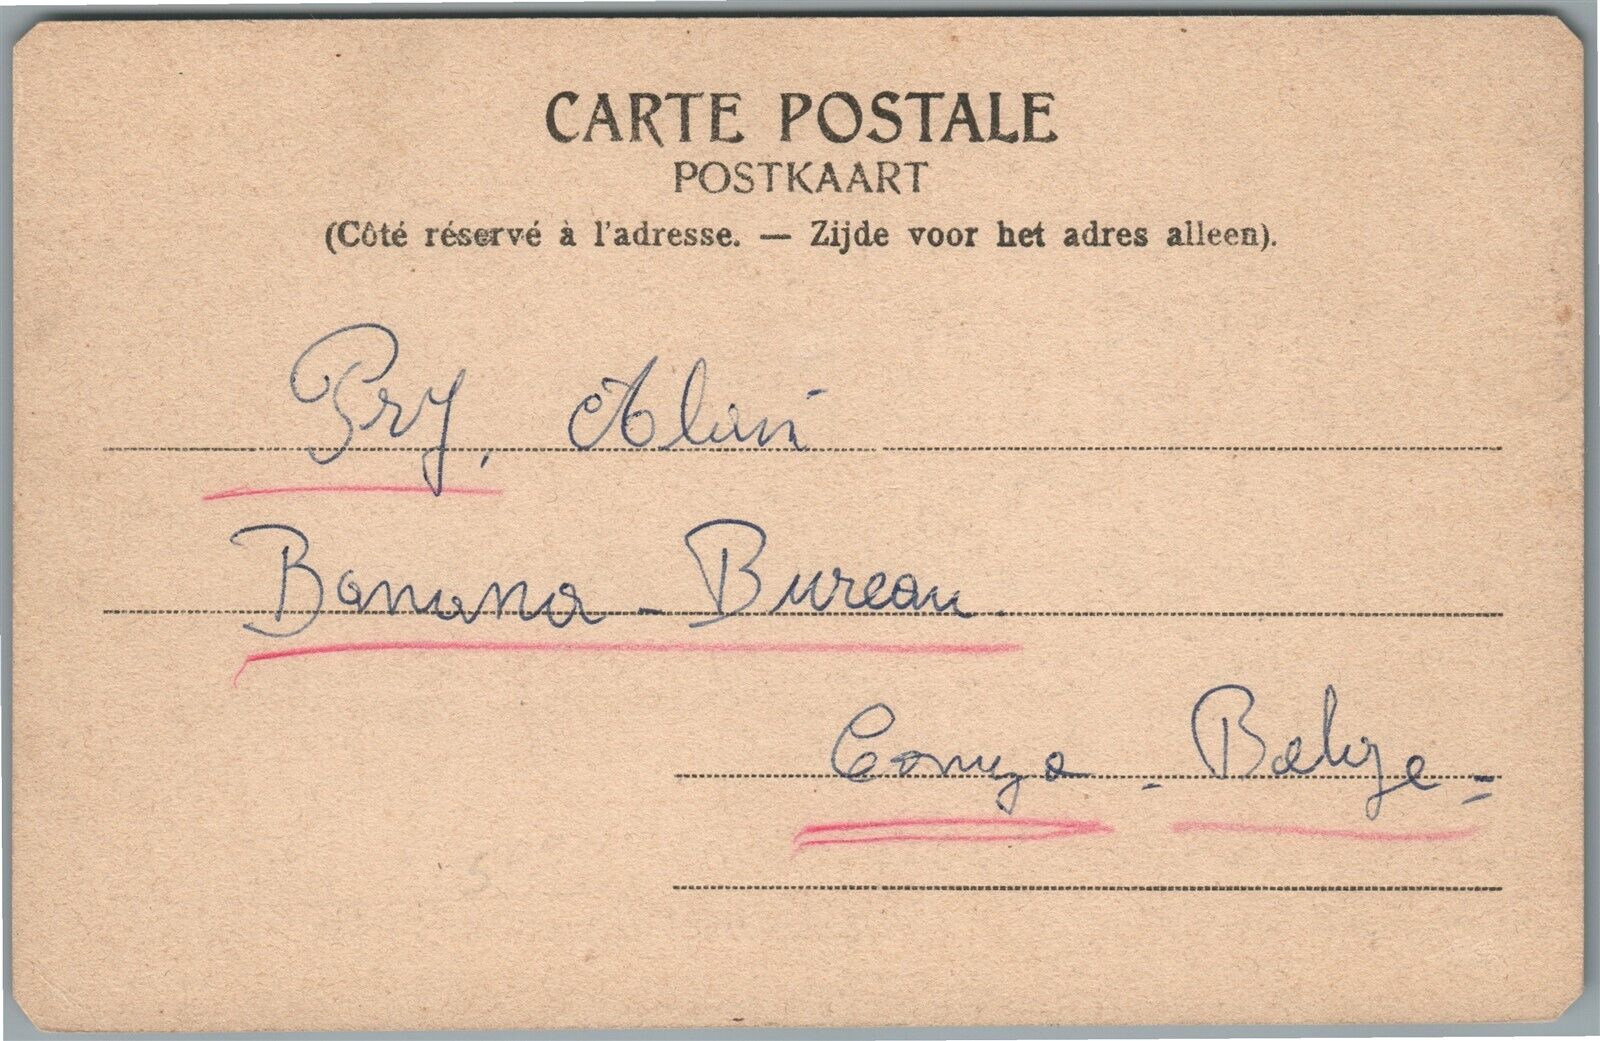 CARTE POSTALE
POSTKAART
(Côté réservé à l'adresse. — Zijde voor het adres alleen).
Pry, Alain
Banana - Bureau.
Congo - Belge =